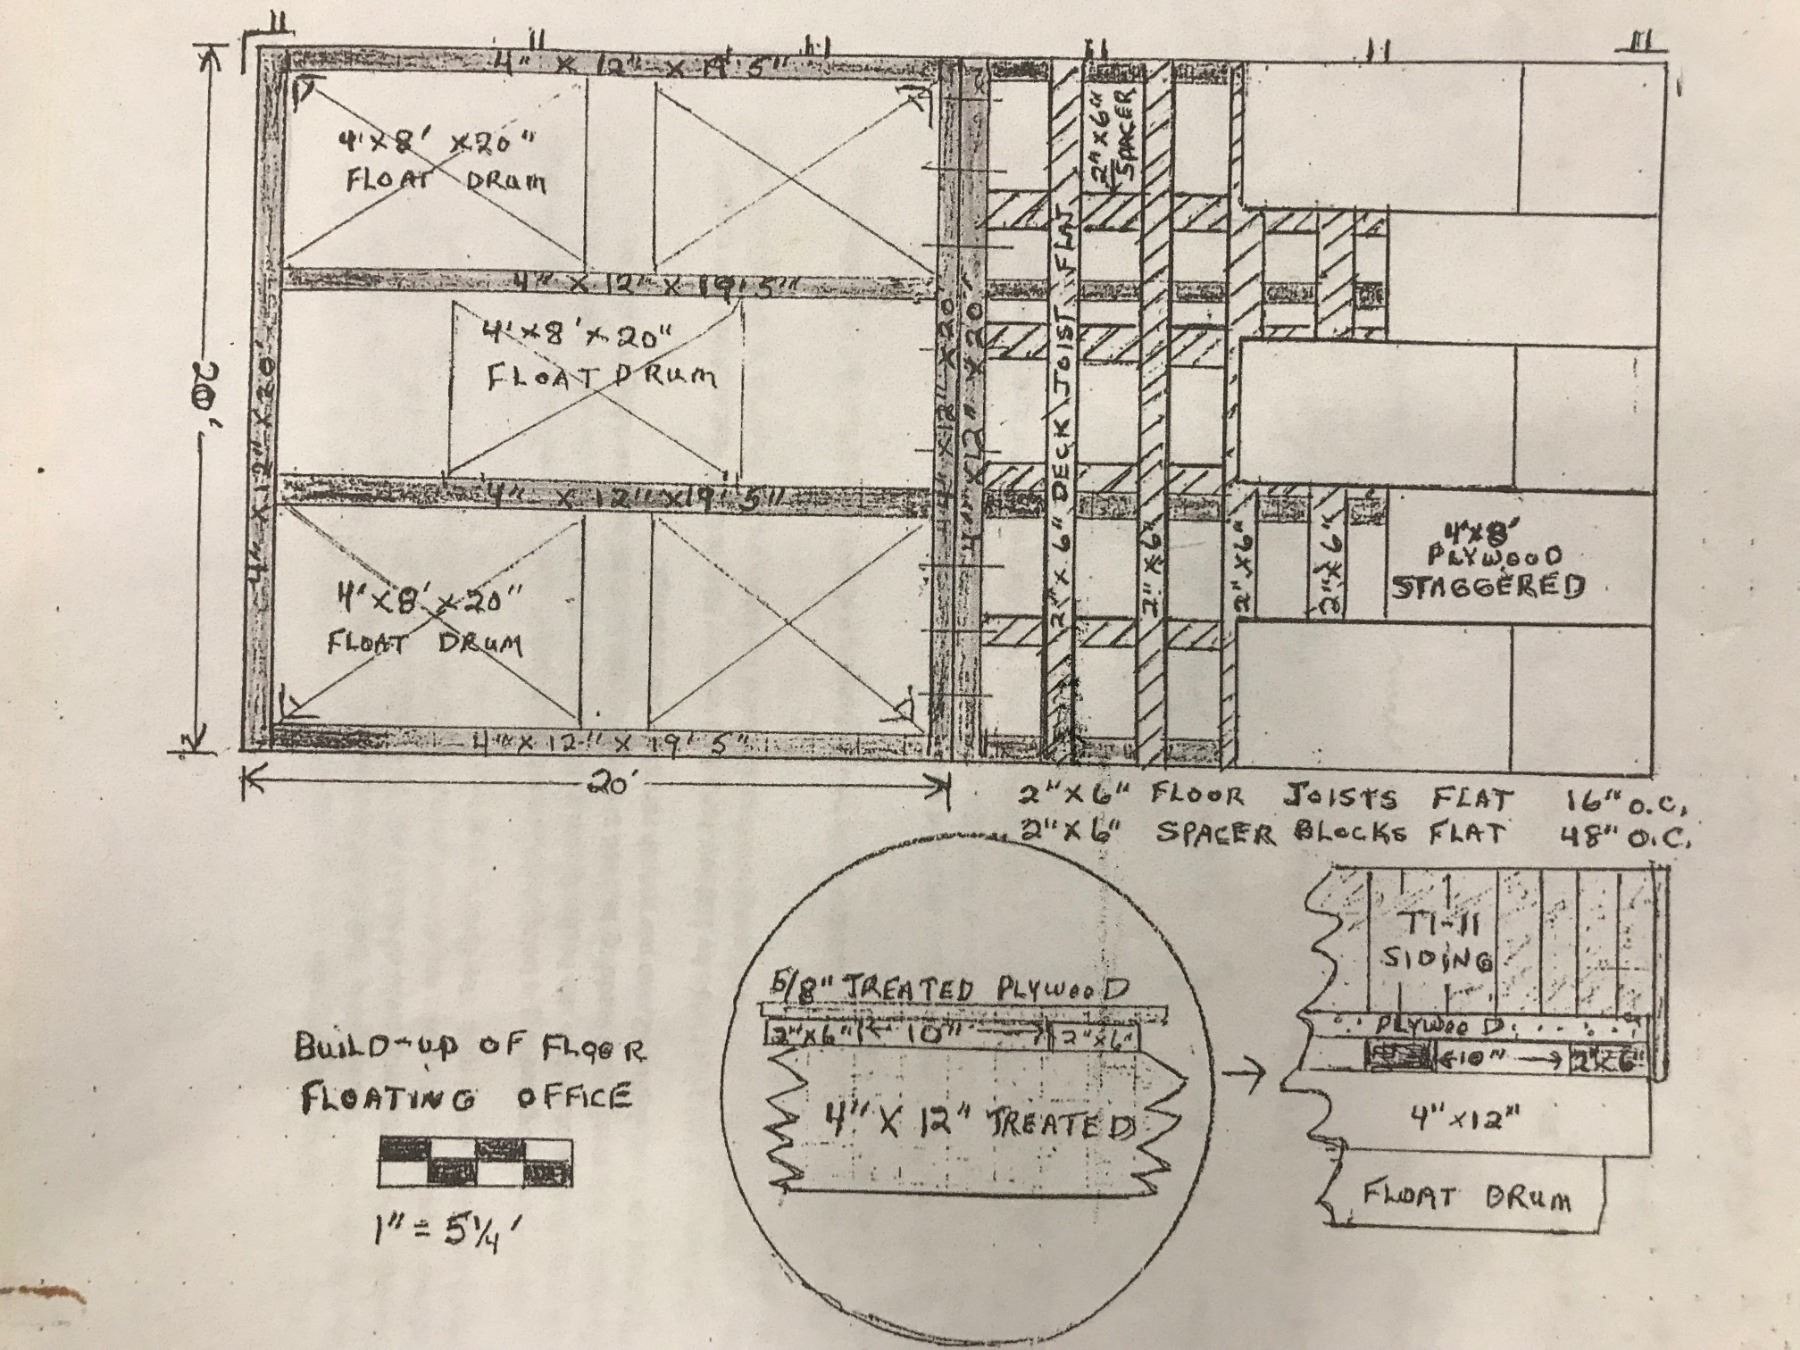 4" X 12" X 19' 5"
4'X8' X20"
FLOAT DRUM
2"X6"
SPACER
4" X 12" X 19' 5"
4'X8'X20"
FLOAT DRUM
20'
4" X 12" X 20'
4" X12" X 20'
4" X12" X 20'
2" X 6" DECK JOIST FLAT
4" X 12" X19' 5"
2"X6"
2"X6"
2"X6"
4'X8'
PLYWOOD
STAGGERED
4'X8'X20"
FLOAT DRUM
4" X 12" X 19' 5"
20'
2"X6" FLOOR JOISTS FLAT 16" O.C.
2"X6" SPACER BLOCKS FLAT 48" O.C.
5/8" TREATED PLYWOOD
2"X6" 10" 2"X6"
4" X 12" TREATED
T1-11
SIDING
PLYWOOD
10" 2"X6"
4" X12"
FLOAT DRUM
BUILD-UP OF FLOOR
FLOATING OFFICE
1" = 5 1/4'